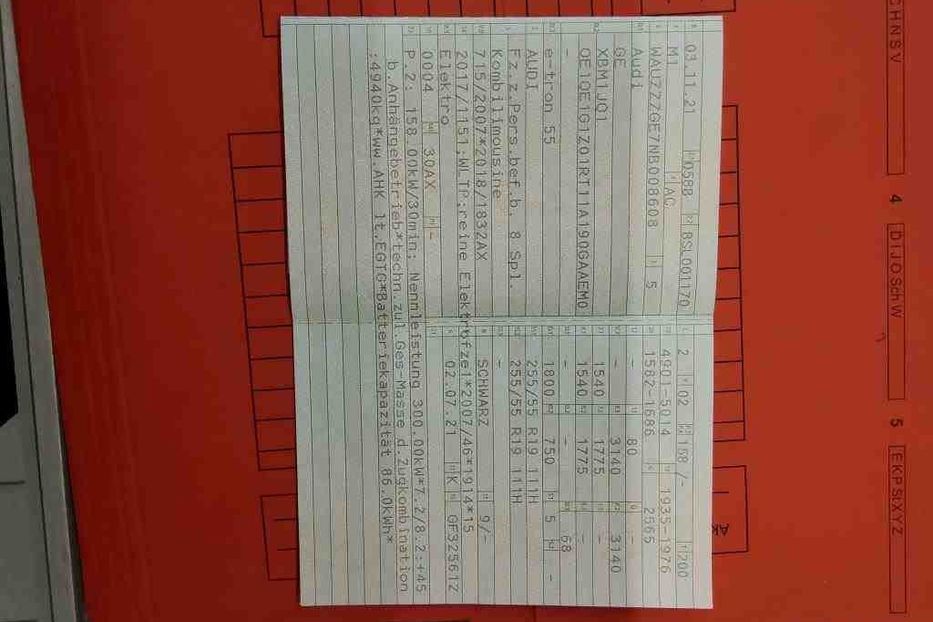 03.11.21 0588 BSL001170
M1 AC
WAUZZZGE7NB008608 5
Audi
GE
XBM1JQ1
QE1QE1G1Z01RT11A190GAAEM0
-
e-tron 55
AUDI
Fz.z.Pers.bef.b. 8 Spl.
Kombilimousine
715/2007*2018/1832AX
2017/1151;WLTP;reine Elektrofze
Elektro
0004 30AX -
2 02 158/- 200
4901-5014 1935-1976
1582-1686 2565
- 80 -
- 3140 3140
1540 1775 -
1540 1775 -
- - 68
1800 750 5 -
255/55 R19 111H
255/55 R19 111H
-
SCHWARZ 9/-
e1*2007/46*1914*15
02.07.21 K GE325612
P.2: 158.00kW/30min; Nennleistung 300.00kW*7.2/8.2:+45
b.Anhängebetrieb*techn.zul.Ges-Masse d.Zugkombination
:4940kg*ww.AHK lt.EGTG*Batteriekapazität 86.0kWh*
CHNSV
4 DIJOSchW
5 EKPStXYZ
AK